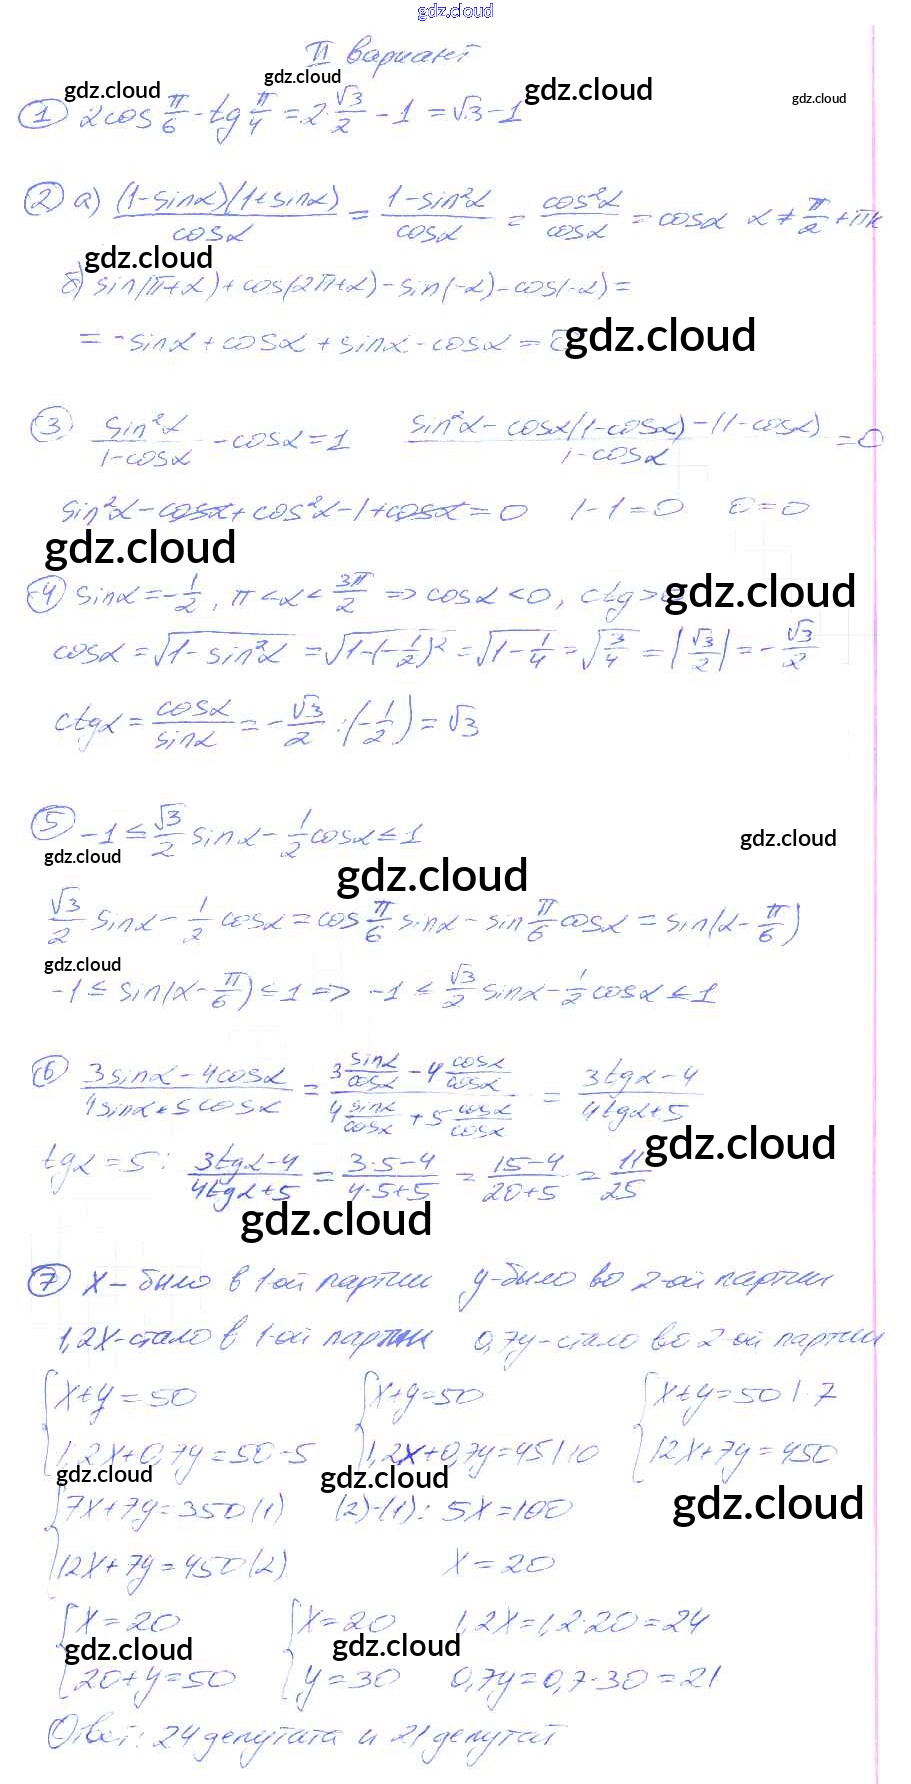 gdz.cloud
II вариант
gdz.cloud gdz.cloud gdz.cloud gdz.cloud
1 2cos π/6 - tg π/4 = 2·√3/2 - 1 = √3-1
2 а) (1-sinα)(1+sinα)/cosα = 1-sin²α/cosα = cos²α/cosα = cosα α≠π/2+πk
gdz.cloud
б) sin(π+α)+cos(2π+α)-sin(-α)-cos(-α)=
= -sinα+cosα+sinα-cosα=
gdz.cloud
3 sin²α/1-cosα - cosα=1 sin²α-cosα(1-cosα)-(1-cosα)/1-cosα =0
sin²α-cosα+cos²α-1+cosα=0 1-1=0 0=0
gdz.cloud
4 sinα=-1/2, π<α<3π/2 => cosα<0, ctg>
gdz.cloud
cosα=√1-sin²α=√1-(-1/2)²=√1-1/4=√3/4=|√3/2|=-√3/2
ctgα=cosα/sinα=-√3/2:(-1/2)=√3
5 -1≤√3/2 sinα-1/2 cosα≤1
gdz.cloud gdz.cloud gdz.cloud
√3/2 sinα-1/2 cosα=cos π/6 sinα-sin π/6 cosα=sin(α-π/6)
gdz.cloud
-1≤sin(α-π/6)≤1=> -1≤√3/2 sinα-1/2 cosα≤1
6 3sinα-4cosα/4sinα+5cosα = 3 sinα/cosα - 4 cosα/cosα / 4 sinα/cosα + 5 cosα/cosα = 3tgα-4/4tgα+5
gdz.cloud
tgα=5: 3tgα-4/4tgα+5 = 3·5-4/4·5+5 = 15-4/20+5 = 11/25
gdz.cloud
7 х-было в 1-ой партии у-было во 2-ой партии
1,2х-стало в 1-ой партии 0,7у-стало во 2-ой партии
{х+у=50 {х+у=50 {х+у=50 |·7
1,2х+0,7у=50-5 1,2х+0,7у=45|·10 12х+7у=450
gdz.cloud gdz.cloud gdz.cloud
{7х+7у=350(1) (2)-(1): 5х=100
12х+7у=450(2) х=20
{х=20 {х=20 1,2х=1,2·20=24
gdz.cloud gdz.cloud
20+у=50 у=30 0,7у=0,7·30=21
Ответ: 24 депутата и 21 депутат